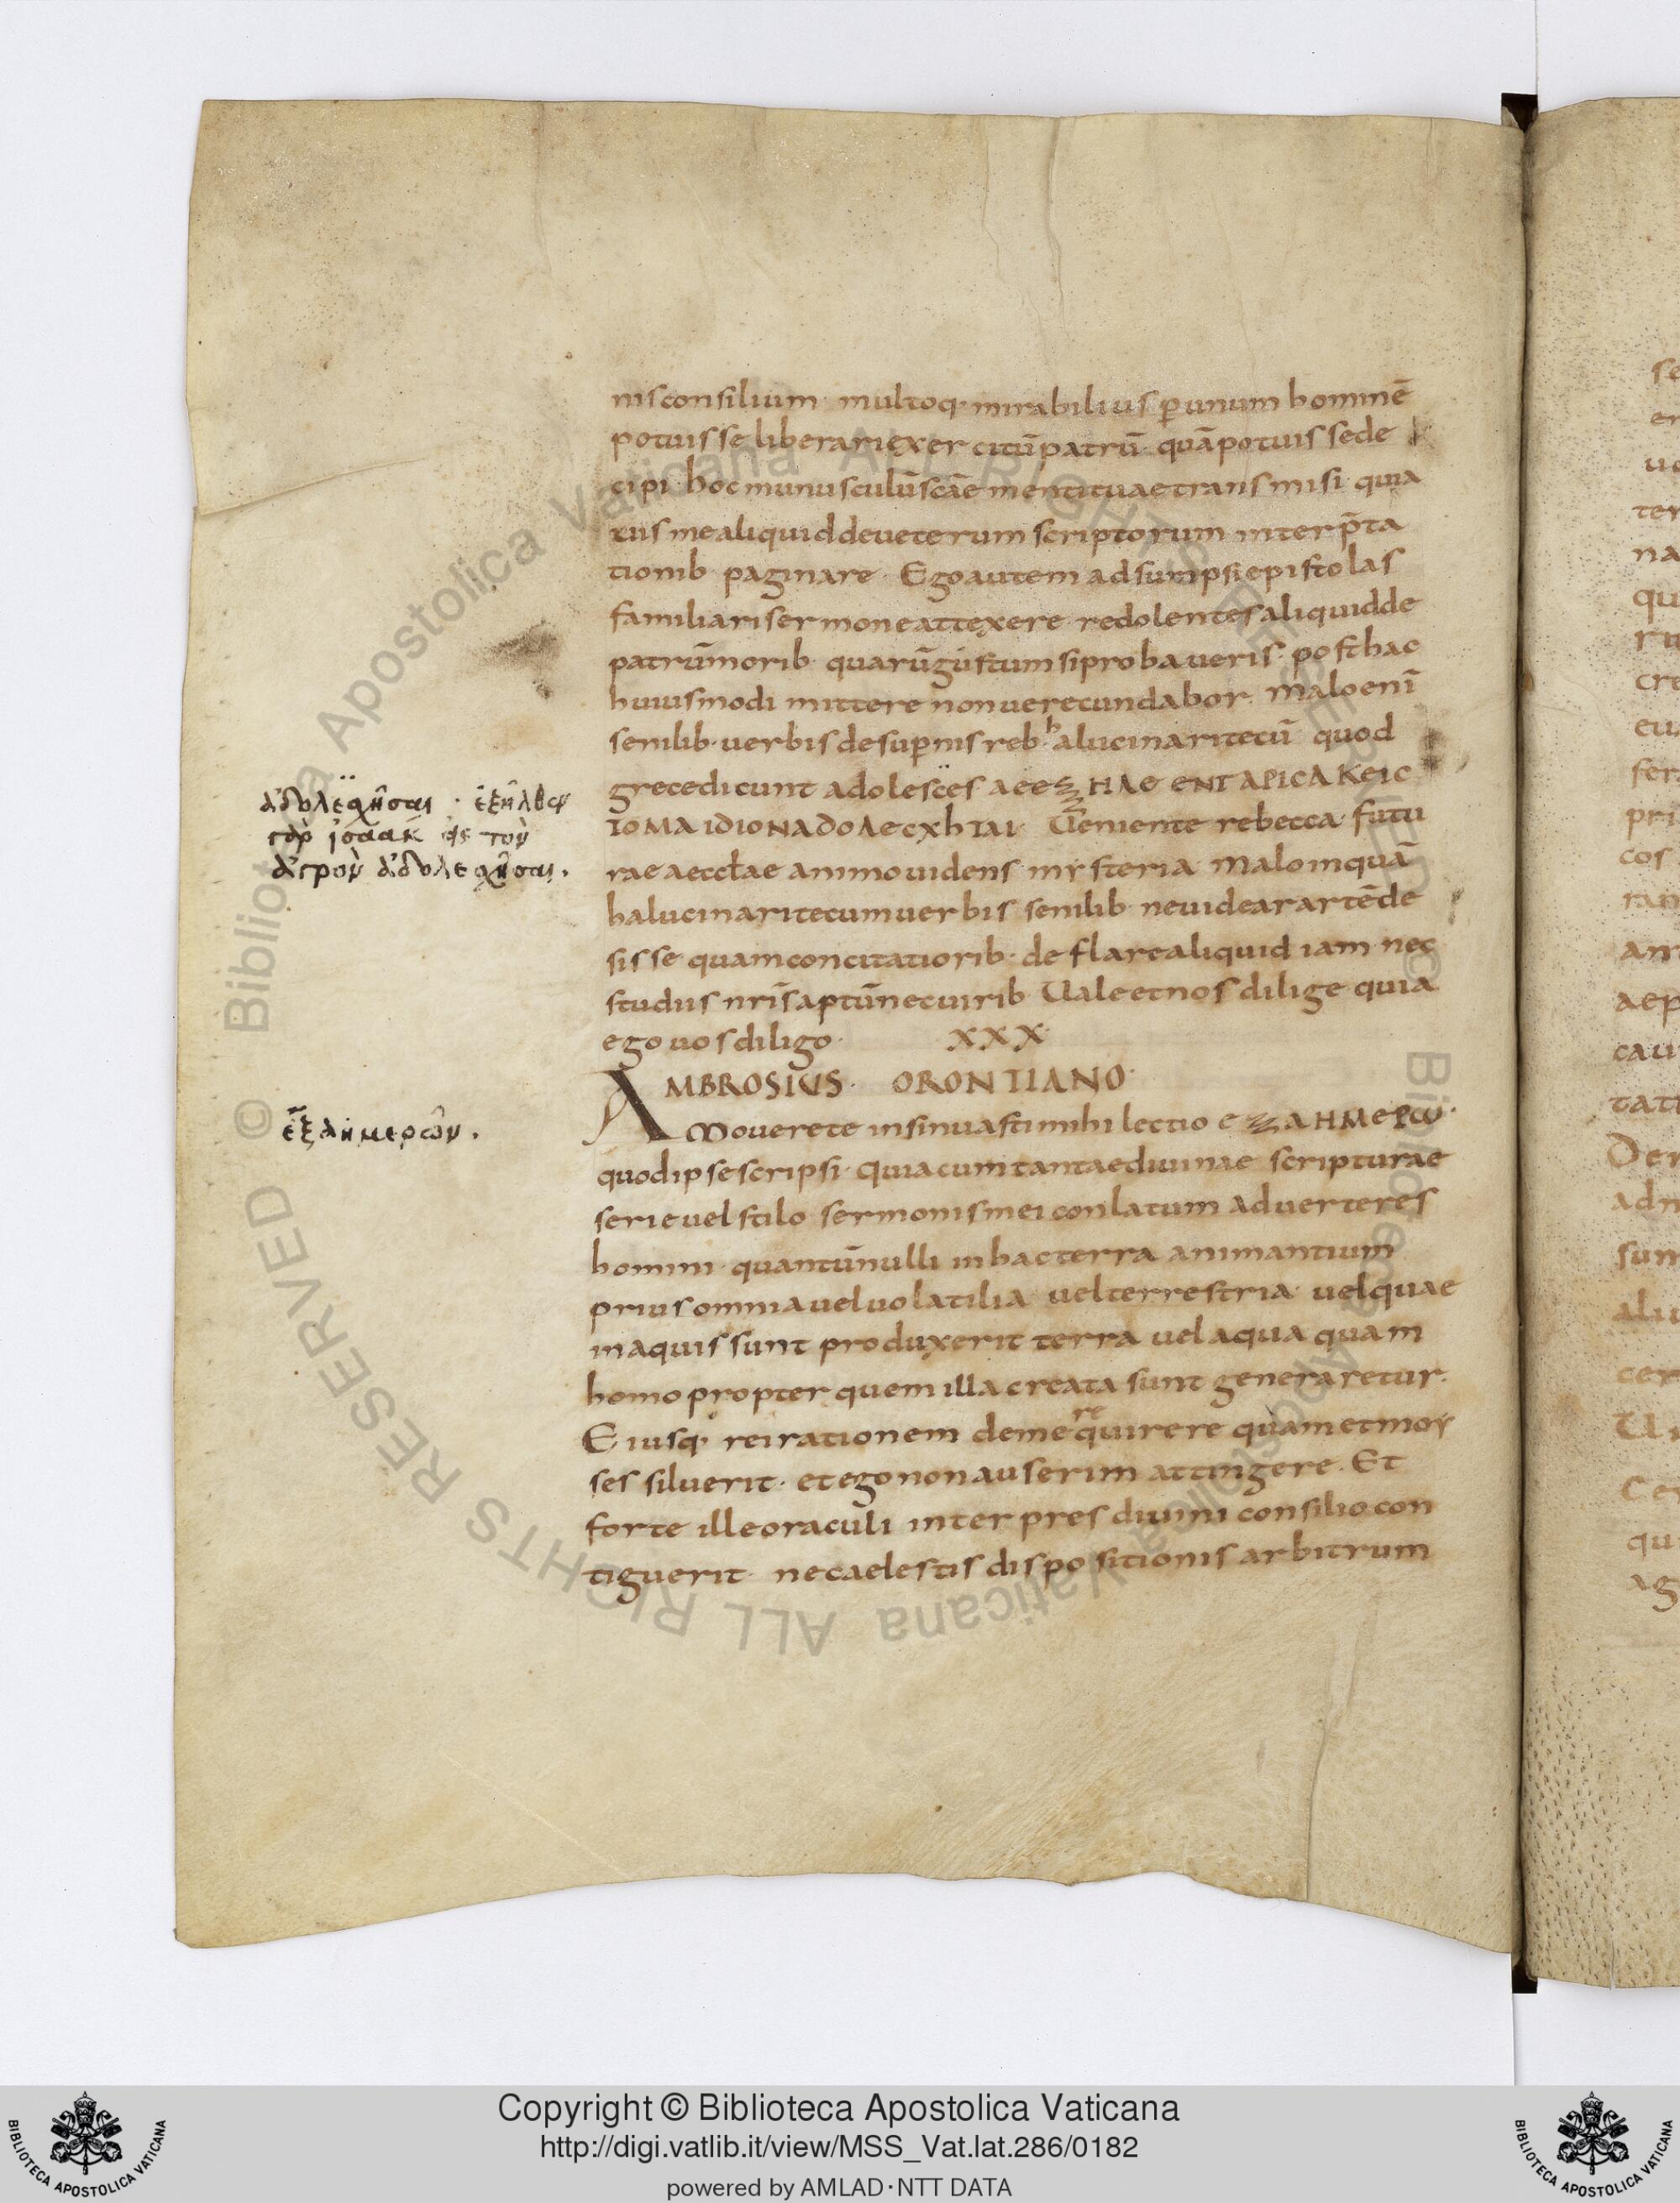 nis consilium· multoq· mirabilius p̄ unum hominē
potuisse liberari exercitū patrū· quā potuisse de
cipi· hoc munusculū scāe menti tuae transmisi· quia
uis me aliquid de ueterum scriptorum interp̄ta
tionib· paginare· Ego autem adsumpsi epistolas
familiari sermone attexere· redolentes aliquid de
patrū morib· quarū gustum si probaueris· posthac
huiusmodi mittere non uerecundabor· malo enī
senilib· uerbis de sup̄nis reb· halucinari tecū quod
grece dicunt adolesces ΑΕΕΞ ΗΛΕ ΕΝΤ ΑΡΙCΑΚΕΙC
ΤΟΜΑΙΔΙΟΝΑΔΟΛΕCΧhΤΑΙ· Ueniente rebecca· futu
rae aeccłae animo uidens mysteria· malo inquā
halucinari tecum uerbis senilib· ne uidear artē de
sisse quam concitatiorib· deflare aliquid iam nec
studiis nr̄is aptū nec uirib· Uale et nos dilige quia
ego uos diligo· XXX
AMBROSIUS· ORONTIANO·
Mouere te insinuasti mihi lectio ΕΞΑΗΜΕΡω·
quod ipse scripsi· quia cum tantae diuinae scripturae
serie uel stilo sermonis mei conlatum aduerteres
homini· quantū nulli in hac terra animantium
prius omnia uel uolatilia· uel terrestria· uel quae
in aquis sunt produxerit terra uel aqua quam
homo propter quem illa creata sunt generaretur·
Eiusq· rei rationem de me requirere quam et moy
ses siluerit· et ego non auserim attingere· Et
forte ille oraculi interpres diuini consilio con
tiguerit· ne caelestis dispositionis arbitrum
ἀδολεσχῆσαι · ἐξῆλθεν
ἰσαὰκ εἰς τὸν
ἀγρὸν ἀδολεσχῆσαι.
ἑξαημερῶν.
© Biblioteca Apostolica Vaticana ALL RIGHTS RESERVED
© Biblioteca Apostolica Vaticana ALL RIGHTS RESERVED
Copyright © Biblioteca Apostolica Vaticana
http://digi.vatlib.it/view/MSS_Vat.lat.286/0182
powered by AMLAD·NTT DATA
BIBLIOTECA APOSTOLICA VATICANA
BIBLIOTECA APOSTOLICA VATICANA